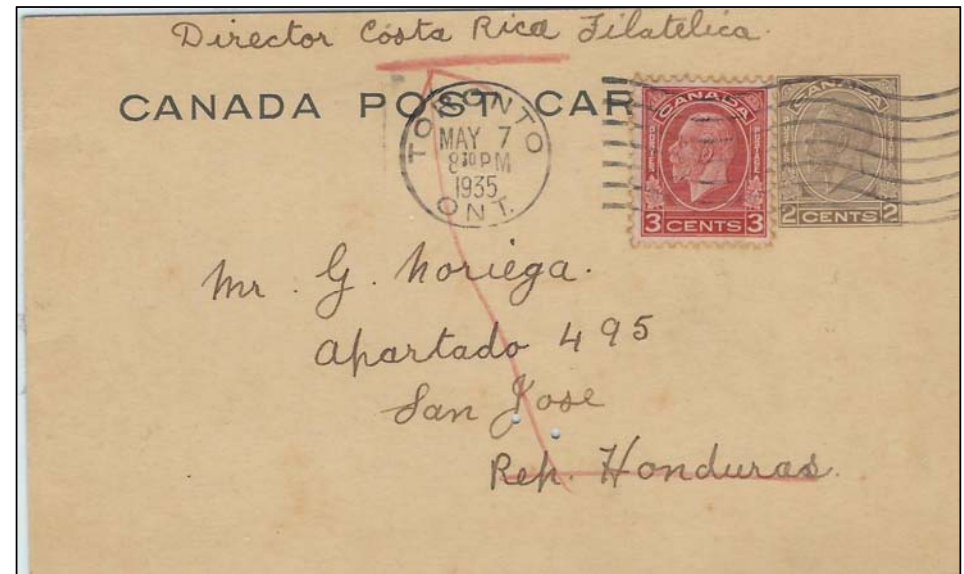 Director Costa Rica Filatelica.
CANADA POST CAR
TORONTO
MAY 7
8 30 PM
1935
ONT.
CANADA
POSTES POSTAGE
3 CENTS 3
CANADA
2 CENTS 2
Mr. G. Noriega.
Apartado 495
San Jose
Rep. Honduras.